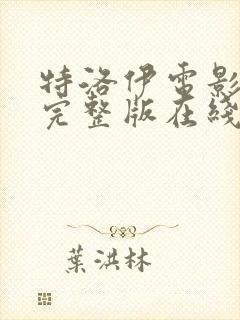 特洛伊電影
完整版在綫
葉洪林